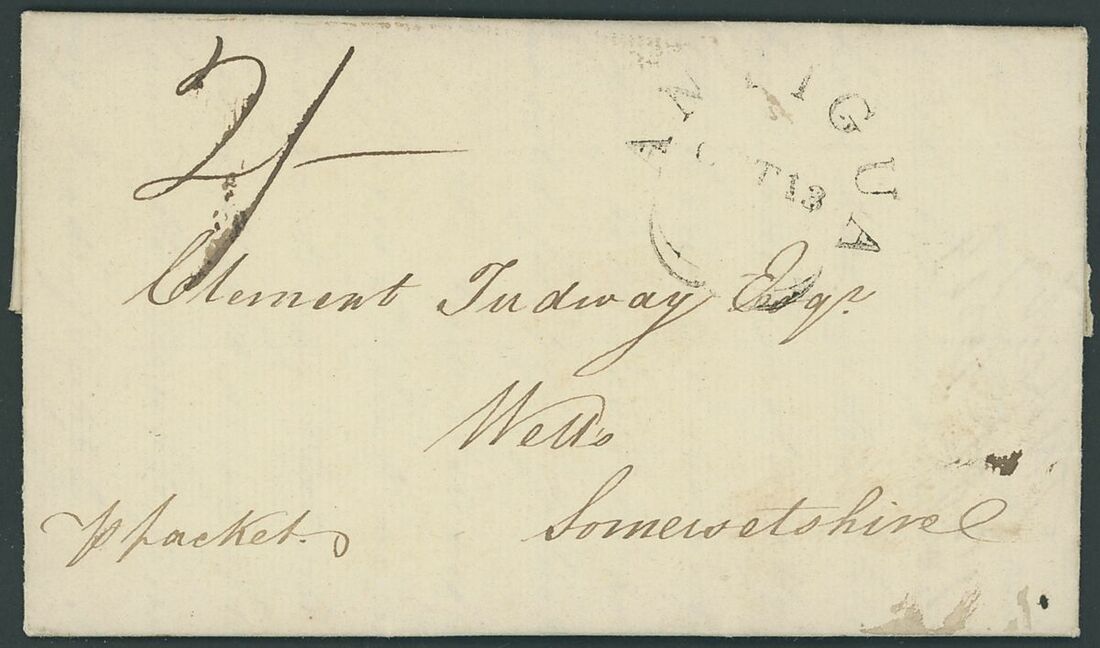 2/-
ANTIGUA
OCT 13
Clement Tudway Esqr.
Wells
Somersetshire
p packet.